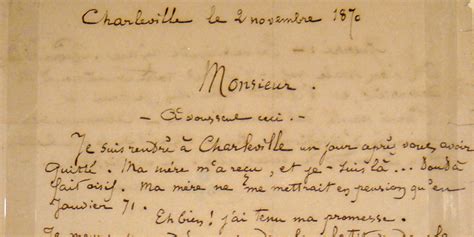 Charleville le 2 novembre 1870
Monsieur.
– A vous seul ceci. –
Je suis rentré à Charleville un jour après vous avoir
quitté. Ma mère m'a reçu, et je – suis là ... tout à
fait oisif. Ma mère ne me mettrait en pension qu'en
Janvier 71.
Eh bien! j'ai tenu ma promesse.
Je meurs